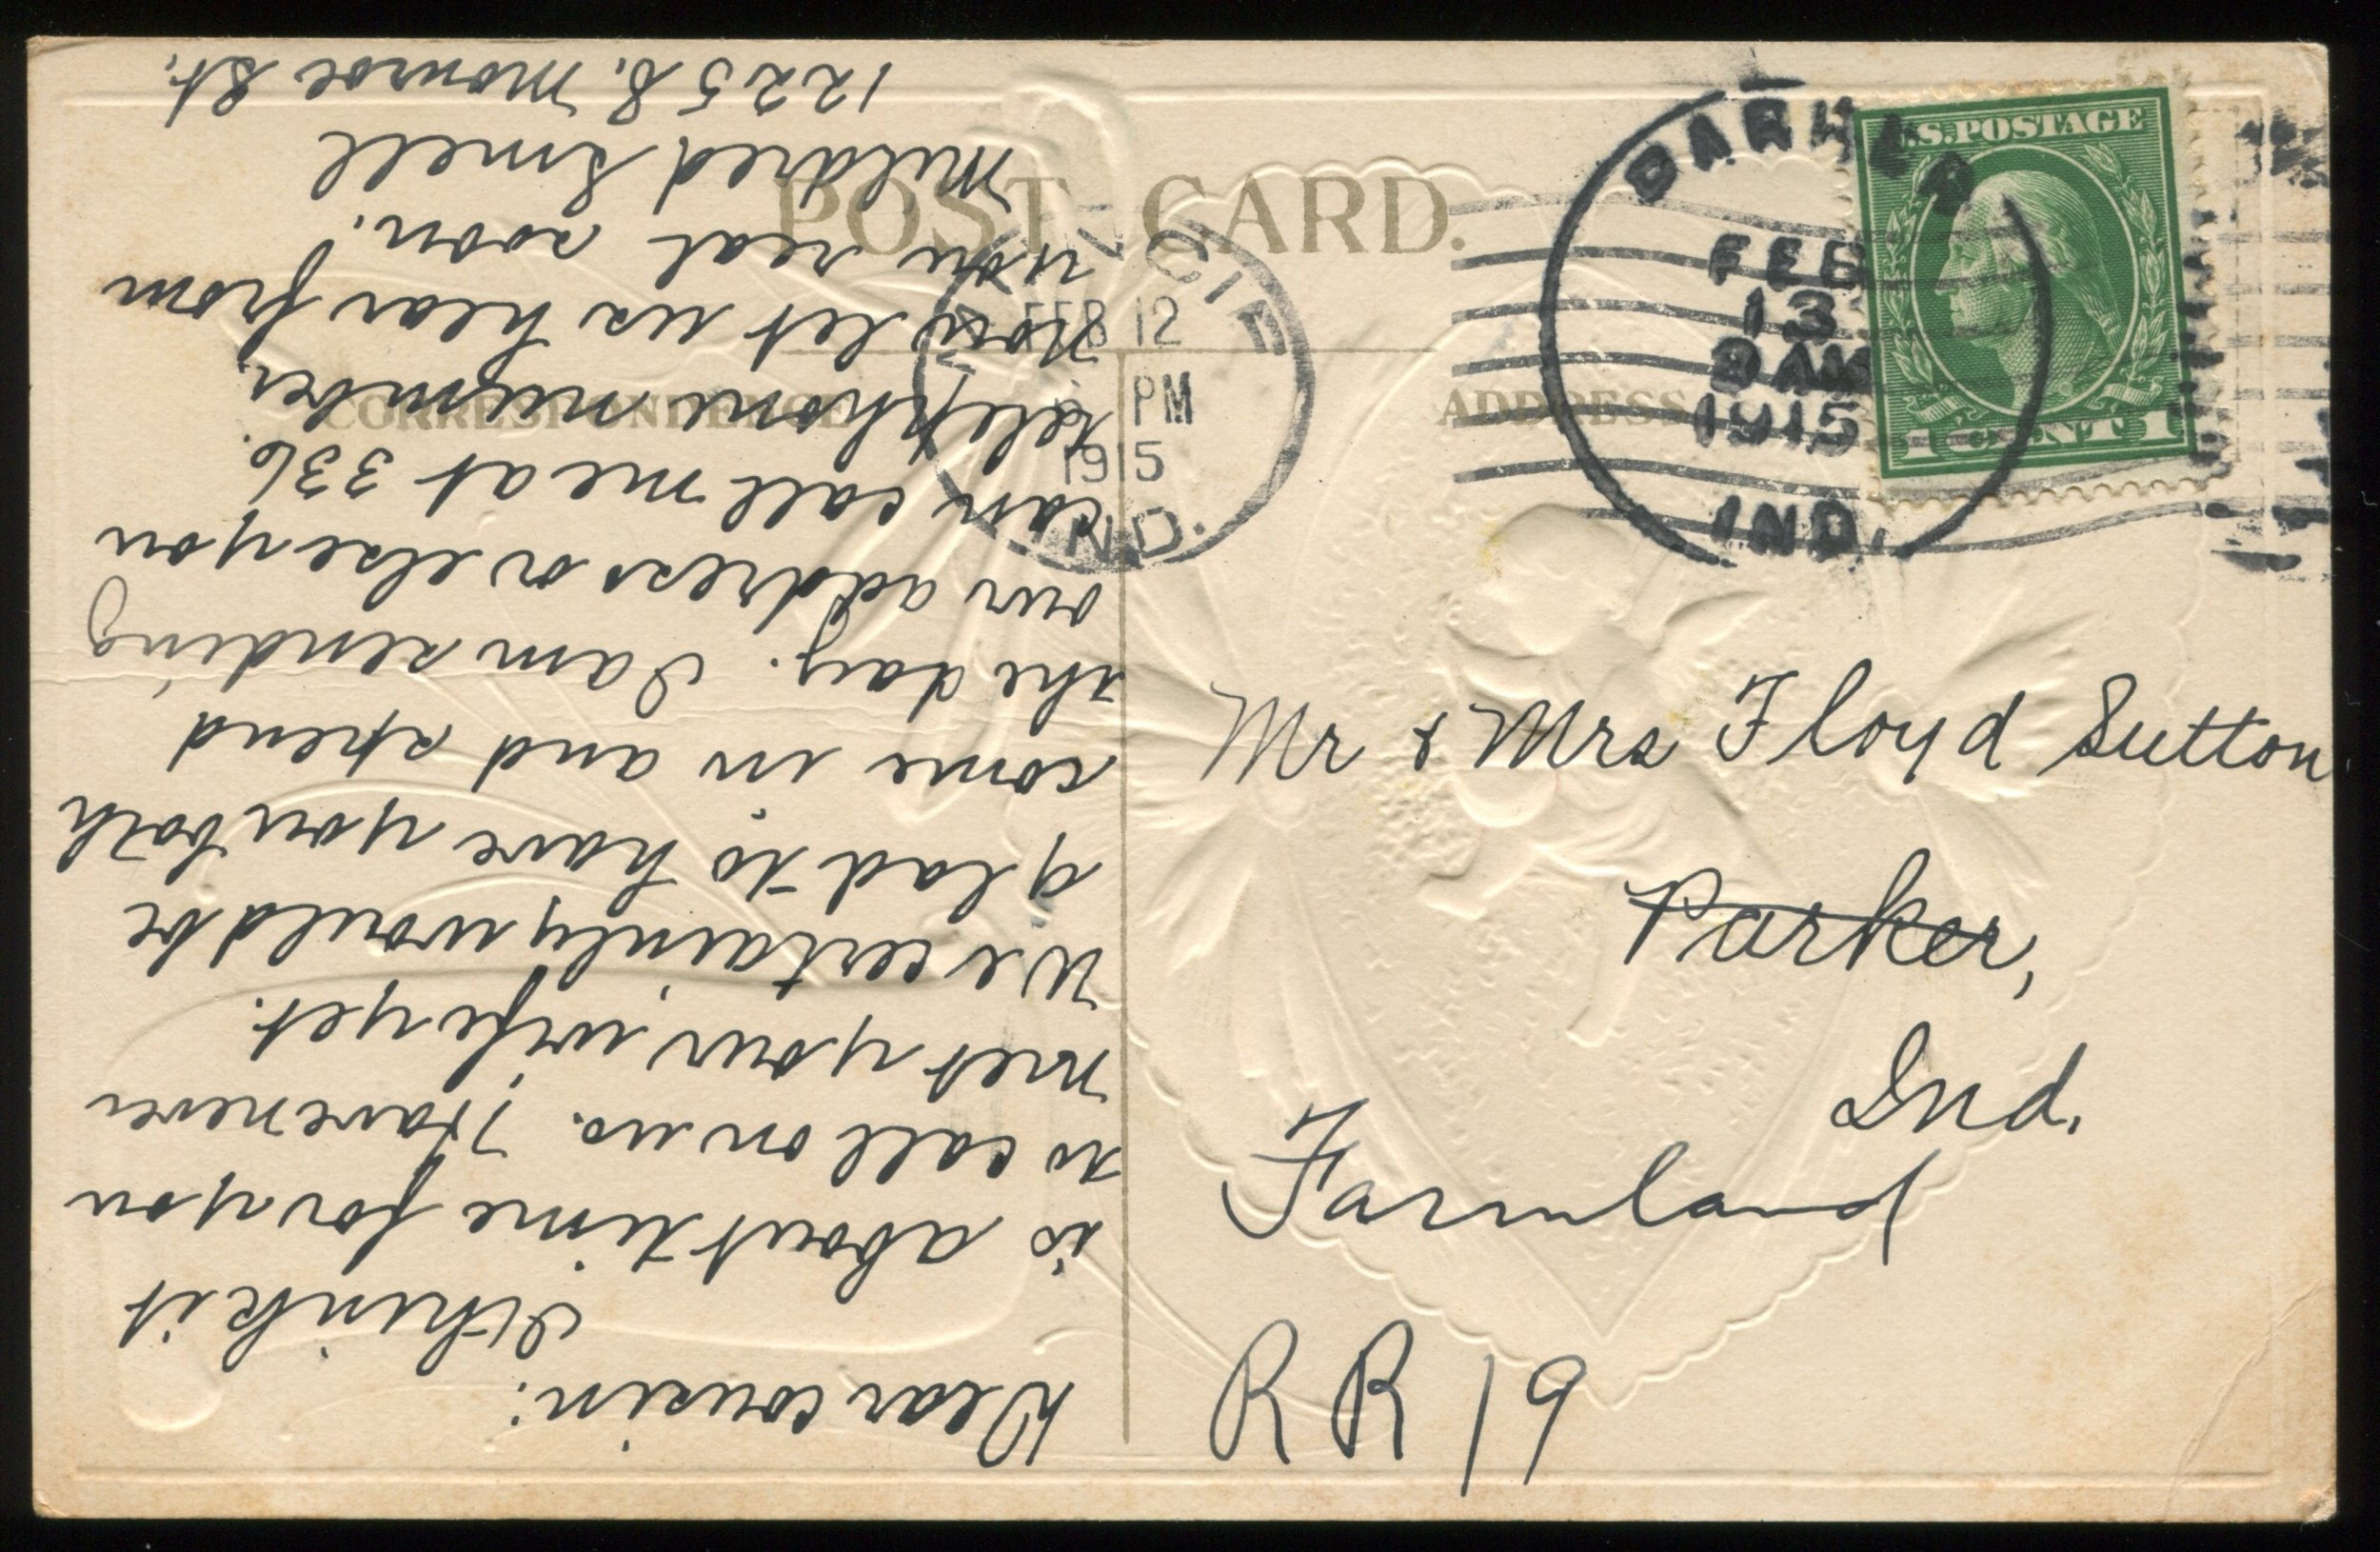 POST CARD.
CORRESPONDENCE
ADDRESS
FEB 12
PM
1915
IND.
PARKER
FEB
13
1915
IND.
U.S. POSTAGE
1 CENT 1
Mr & Mrs Floyd Sutton
Parker,
Ind.
Farmland
R R 19
Dear cousin:
I think it
is about time for you
to call on us. Have never
met your wife yet.
We certainly would be
glad to have you both
come in and spend
the day. I am sending
our address or else you
can call me at 336.
telephone number.
Now let us hear from
you real soon.
Mildred Smell
1225 S. Monroe St.